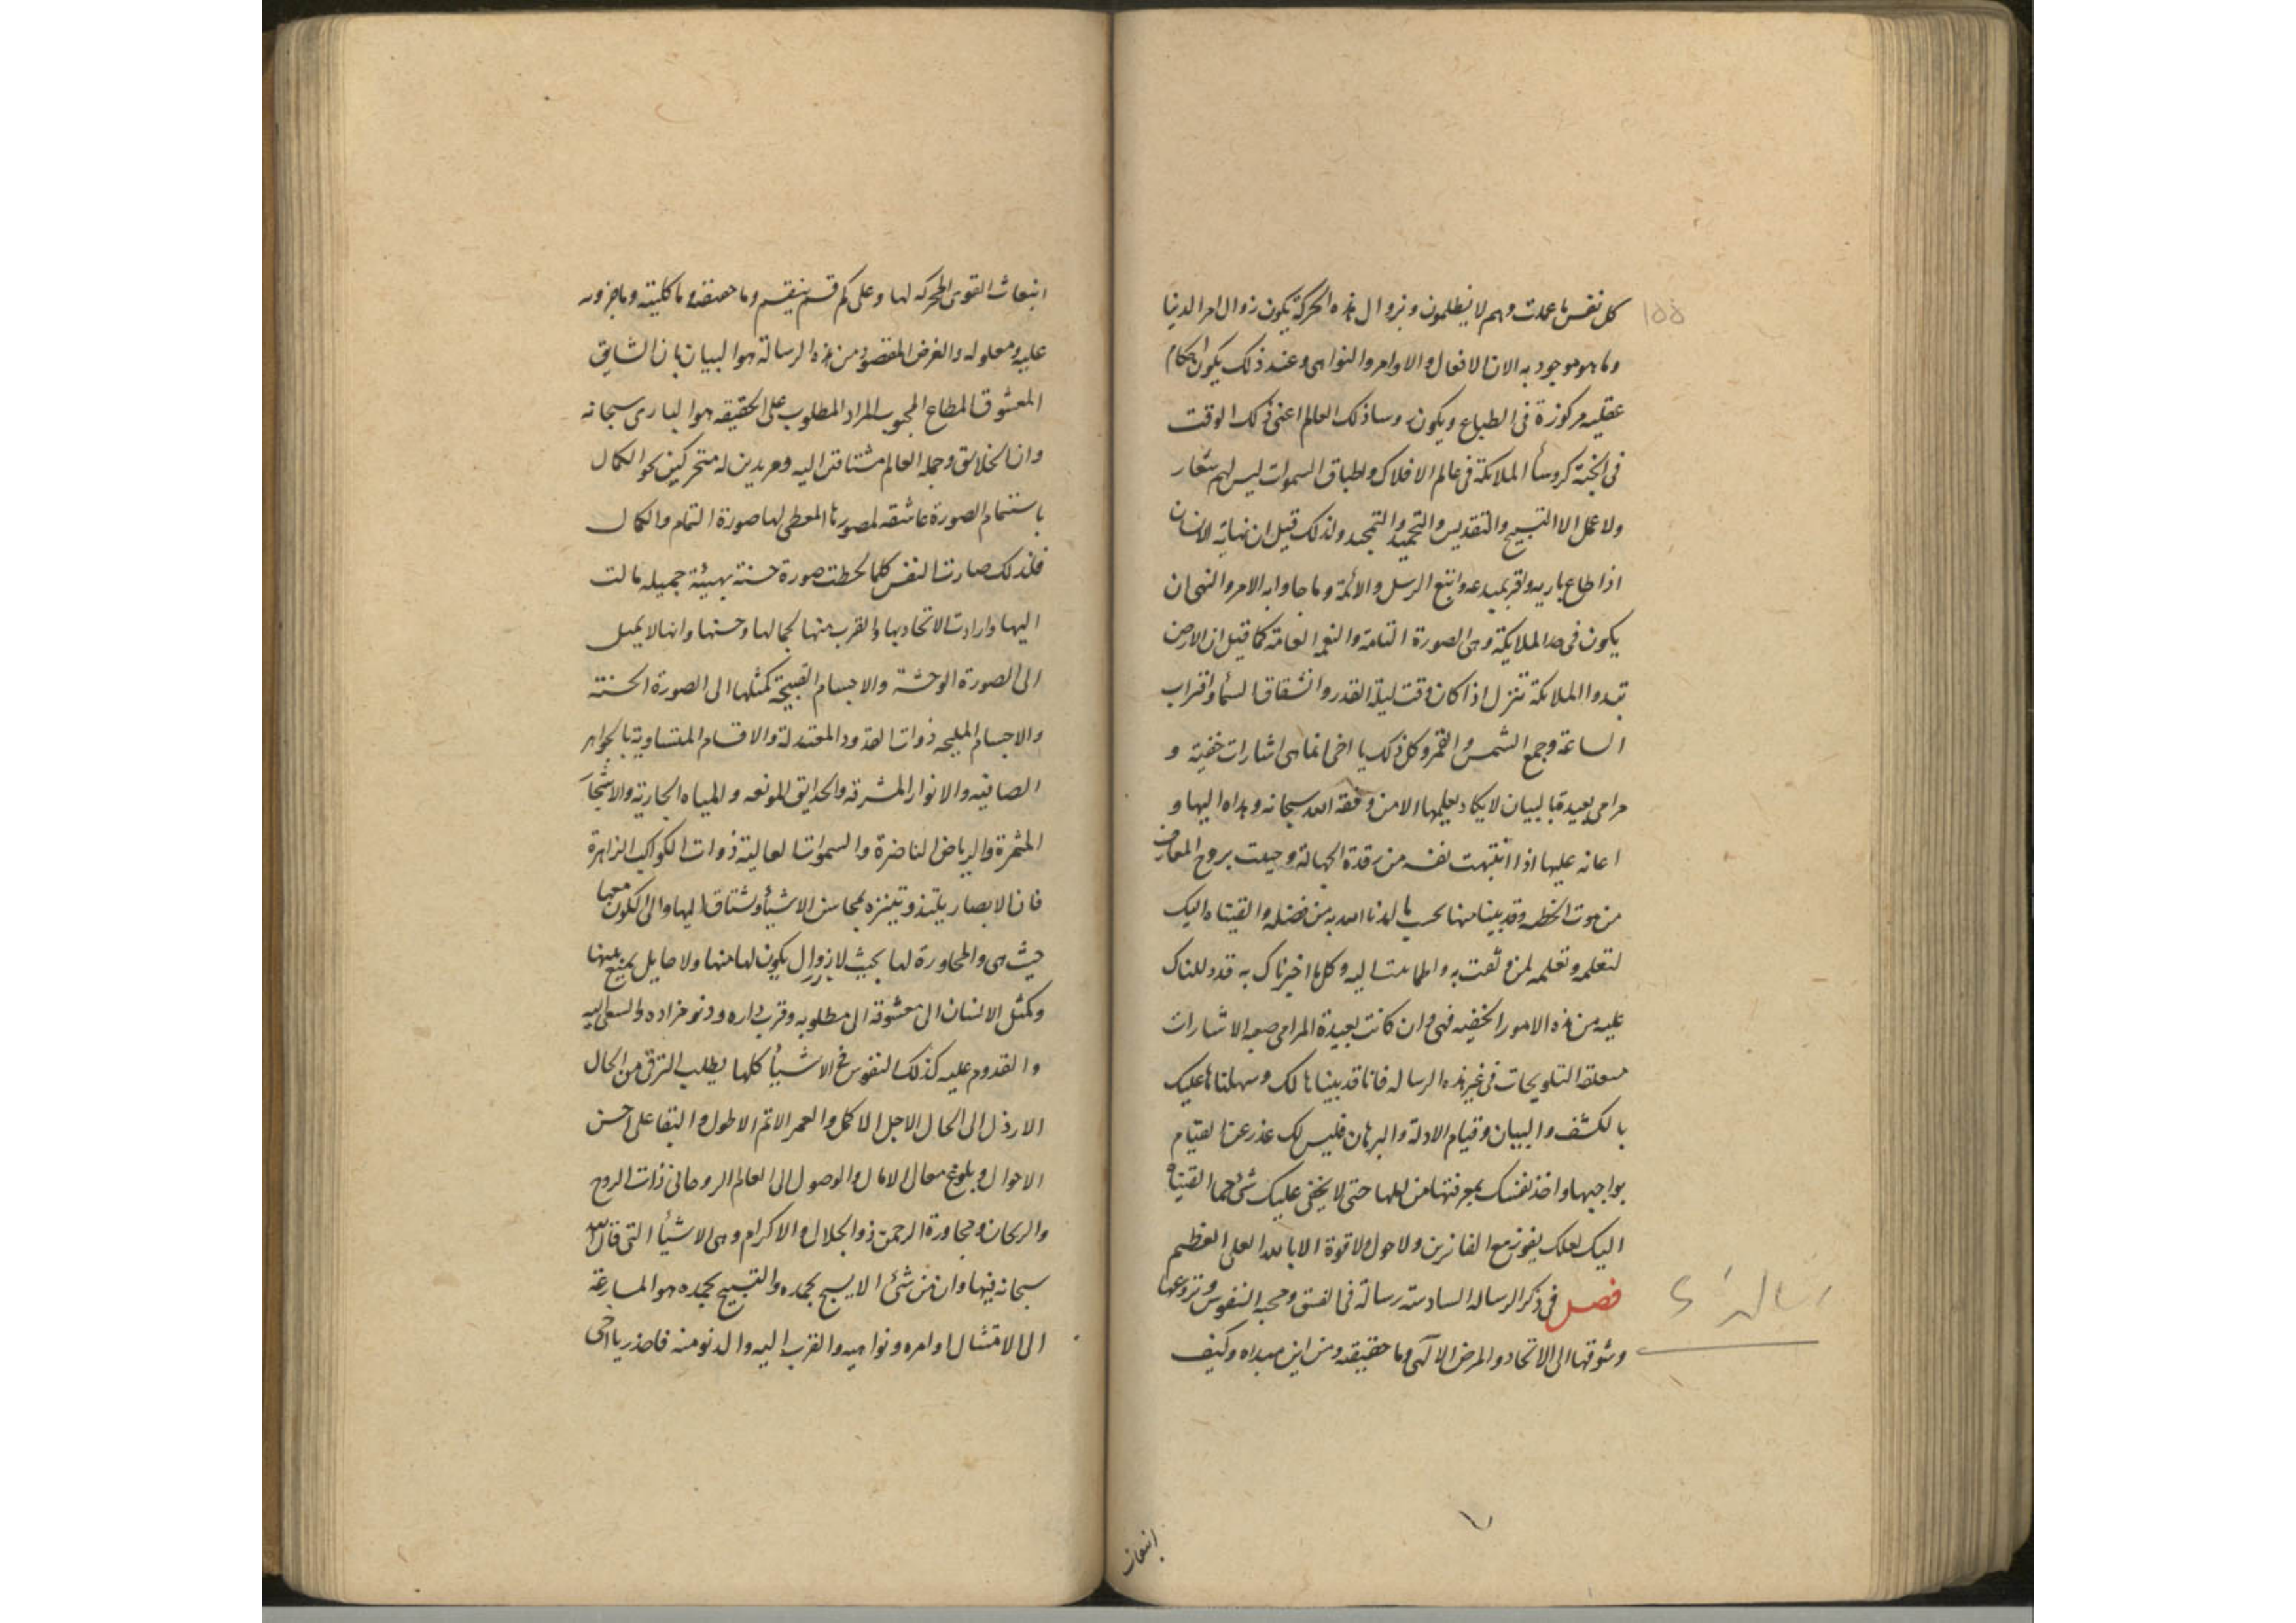 ١٥٥
كل نفس ما عملت وهم لا يظلمون وبزوال هذه الحركة يكون زوال امر الدنيا
وما هو موجود به الان الافعال والاوامر والنواهى وعند ذلك يكون احكام
عقليه مركوزة فى الطباع ويكون رؤسا ذلك العالم اعنى ذلك الوقت
فى الجنة كروسأ الملائكة فى عالم الافلاك واطباق السموات ليس لهم شعار
ولا عمل الا التسبيح والتقديس والتحميد والتمجيد ولذلك قيل ان نهاية الانسان
اذا طاع باريه واقر بمبدعه واتبع الرسل والائمة وما جاوا به الامر والنهى ان
يكون فى حد الملايكة وهى الصورة التامة والنعم العامة كما قيل ان الارض
تبدو الملائكة تنزل اذا كان وقت ليلة القدر وانشقاق السماء واقتراب
الساعة وجمع الشمس والقمر وكل ذلك يا اخى انما هى اشارات خفية و
مرامى بعيدة بالبيان لا يكاد يعلمها الا من وفقه الله سبحانه وهداه اليها و
اعانه عليها اذا انتبهت نفسه من رقدة الجهالة وحييت بروح المعارف
من موت الخطيه وقد بينا منها بحسب ما لدنا الله به من فضله والقيناه اليك
لتعلمه وتعلمه لمن وثقت به واطمأنت اليه وكل ما اخبرناك به قد دللناك
عليه من هذه الامور الخفيه فهى وان كانت بعيدة المرامى صعبه الاشارات
التلويحات فى غير هذه الرساله فانا قد بيناها لك وسهلناها عليك
بالكشف والبيان وقيام الادلة والبرهان فليس لك عذر عن القيام
بواجبها واخذ نفسك بمعرفتها من اهلها حتى لا يخفى عليك شئ مما القيناه
اليك لعلك يفوز مع الفائزين ولا حول ولا قوة الا بالله العلى العظيم
فصل فى ذكر الرساله السادسة رسالة فى العشق ومحبه النفوس ونزوعها
وشوقها الى الاتحاد والمرض الآلهى وما حقيقته ومن اين مبداه وكيف
انبعاث
انبعاث القوى المحركه لها وعلى كم قسم ينقسم وما حقيقته وما كليته وما جزويه
عليه ومعلوله والغرض المقصود من هذه الرسالة هو البيان بان الشايق
المعشوق المطاع المحبوب المراد المطلوب على الحقيقه هو البارى سبحانه
وان الخلائق وجمله العالم مشتاقين اليه ومريدين له متحركين نحو الكمال
باستتمام الصورة عاشقه لمصورها المعطى لها صورة التمام والكمال
فلذلك صارت النفس كلما لحظت صورة حسنة بهيئة جميله مالت
اليها وارادت الاتحاد بها والقرب منها لجمالها وحسنها وانها لا يميل
الى الصورة الوحشة والاجسام القبيحة كمثلها الى الصورة الحسنة
والاجسام المليحه ذوات القدود المعتدلة والاقسام المتساوية بالجواهر
الصافيه والانوار المشرقه والحدايق المونعه والمياه الجارية والاشجار
المثمرة والرياض الناضرة والسموات العالية ذوات الكواكب الزاهرة
فان الابصار يلتذ ويتنزه بمحاسن الاشيأ ويشتاق اليها والى الكون معها
حيث هى والمجاورة لها بحيث لا زوال يكون لها منها ولا حايل يمنع منها
وكمثل الانسان الى معشوقه الى مطلوبه وقرب داره ودنو مزاده والسعى اليه
والقدوم عليه كذلك النفوس فى الاشيأ كلها يطلب الترقى من الحال
الارذل الى الحال الاجل الاكمل والعمر الاتم الاطول والبقا على احسن
الاحوال وبلوغ معالى الامال والوصول الى العالم الروحانى ذات الروح
والريحان ومجاورة الرحمن ذو الجلال والاكرام وهى الاشيأ التى قال الله
سبحانه فيها وان من شئ الا يسبح بحمده والتسبيح بحمده هو المسارعة
الى الامتثال اوامره ونواهيه والقرب اليه والدنو منه فاحذر يا اخى